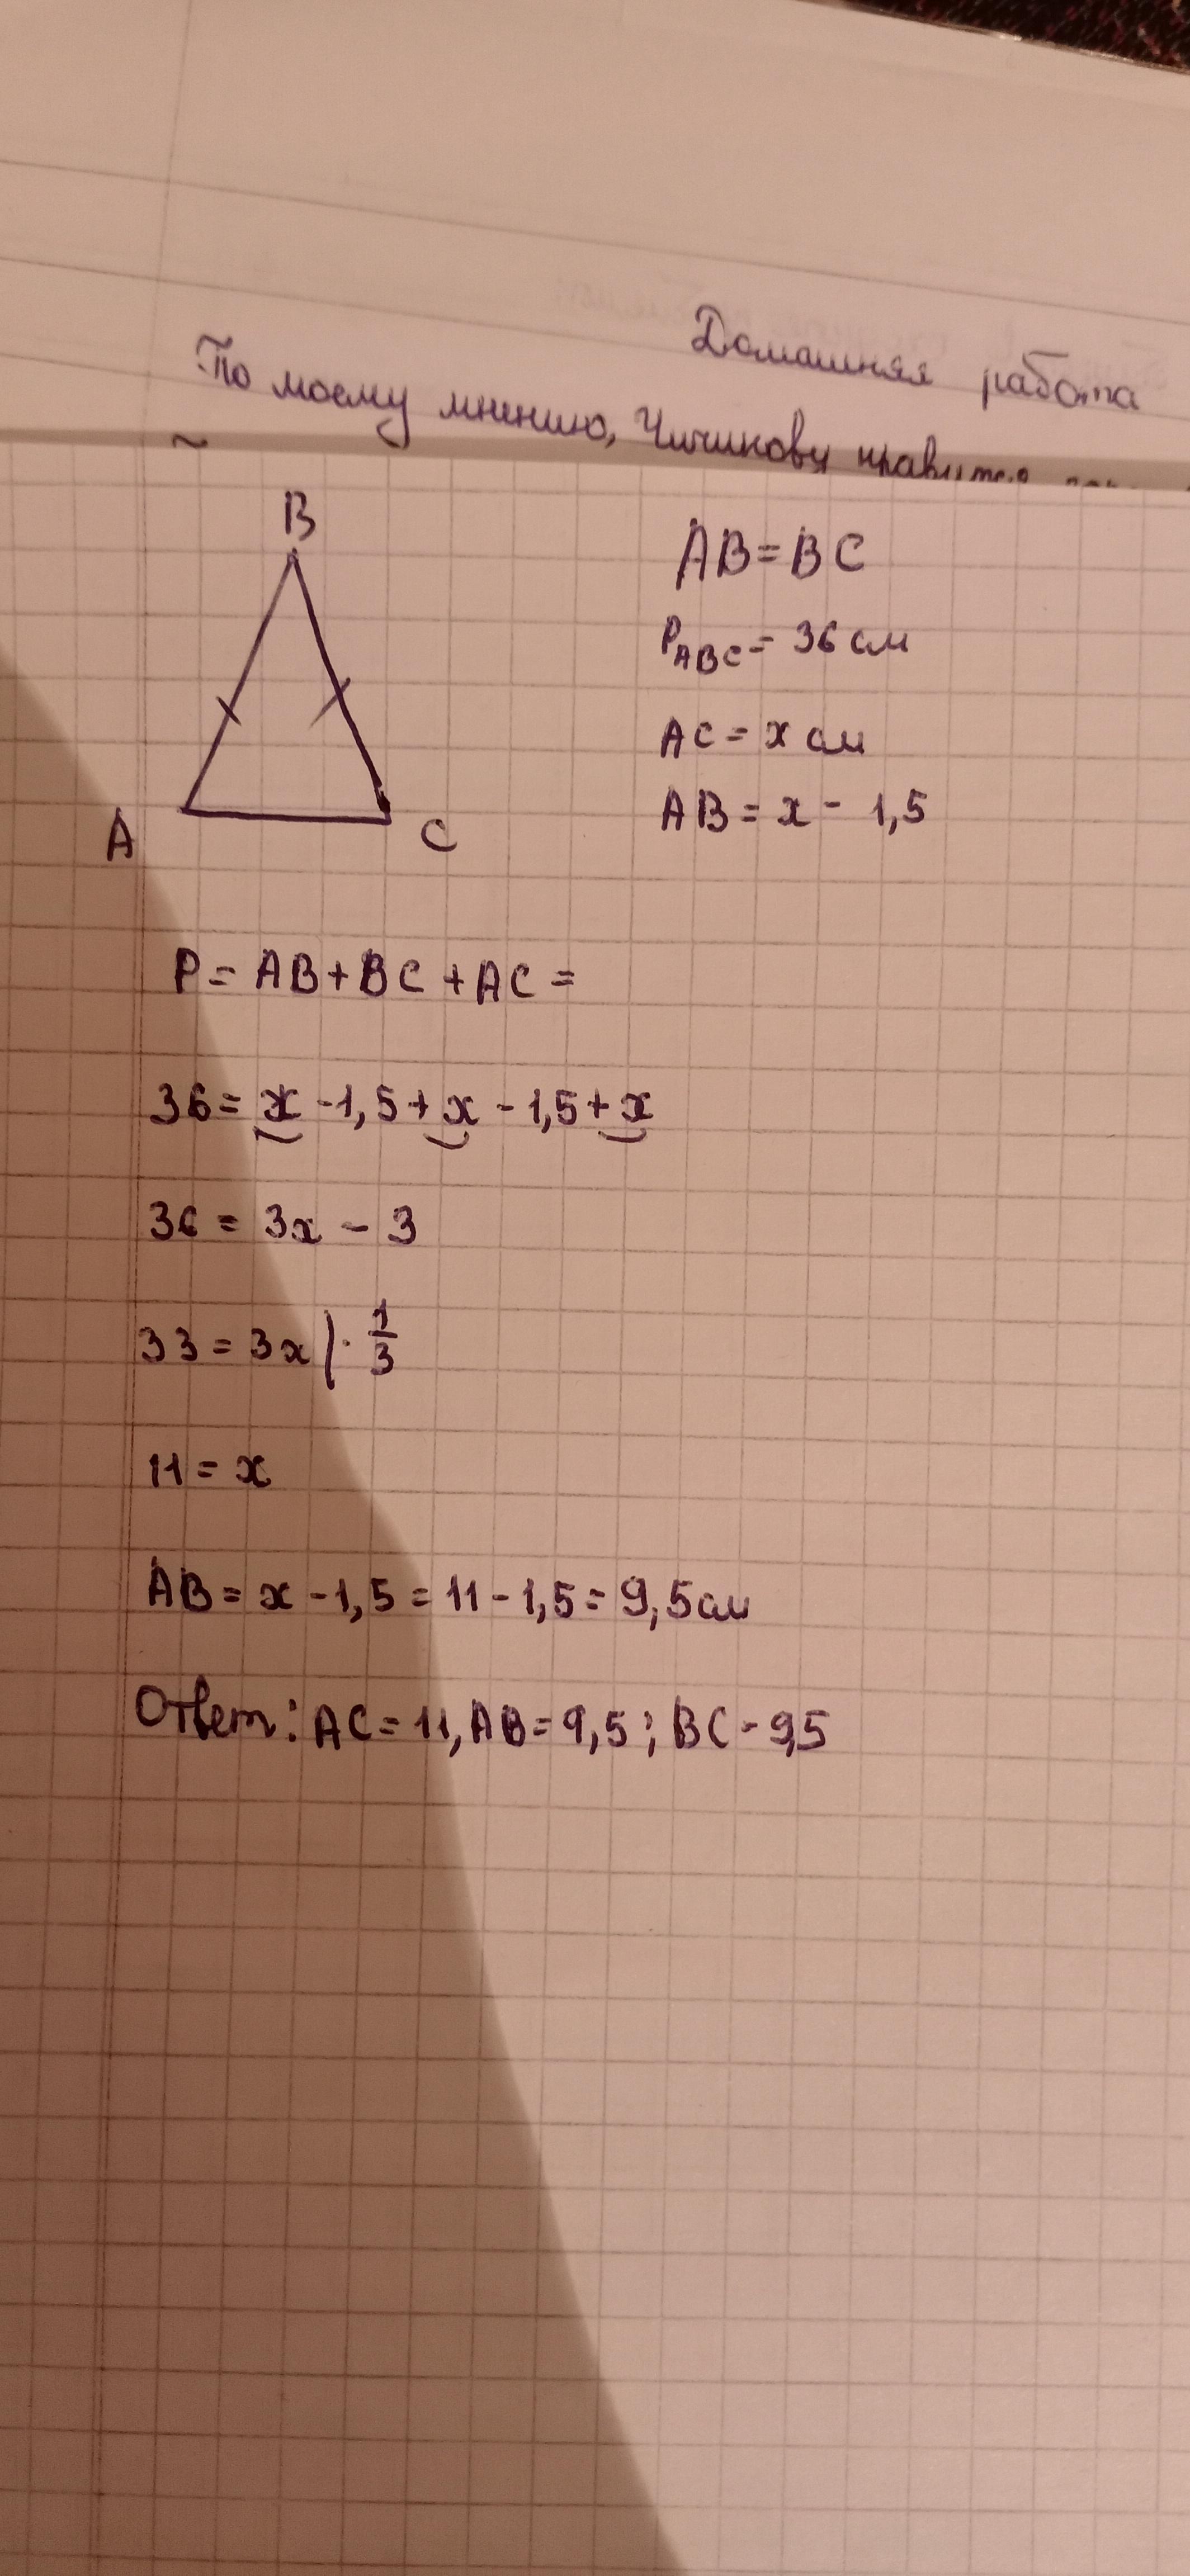 Домашняя работа
По моему мнению, Чичикову нравится
B
A
C
AB = BC
P ABC = 36 см
AC = x см
AB = x - 1,5
P = AB + BC + AC =
36 = x - 1,5 + x - 1,5 + x
36 = 3x - 3
33 = 3x | · 1/3
11 = x
AB = x - 1,5 = 11 - 1,5 = 9,5 см
Ответ: AC = 11, AB = 9,5; BC - 9,5